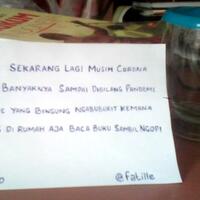 SEKARANG LAGI MUSIM CORONA
BANYAKNYA SAMPAI DIBILANG PANDEMI
E YANG BINGUNG NGABUBURIT KEMANA
DI RUMAH AJA BACA BUKU SAMBIL NGOPI
@fatille